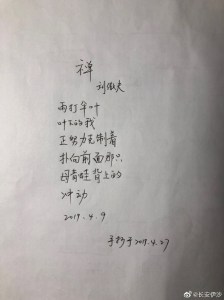 禅
刘傲夫
雨打芋叶
叶下的我
正努力克制着
扑向前面那只
母青蛙背上的
冲动
2019.4.9
手抄于2019.4.27
@长安伊沙